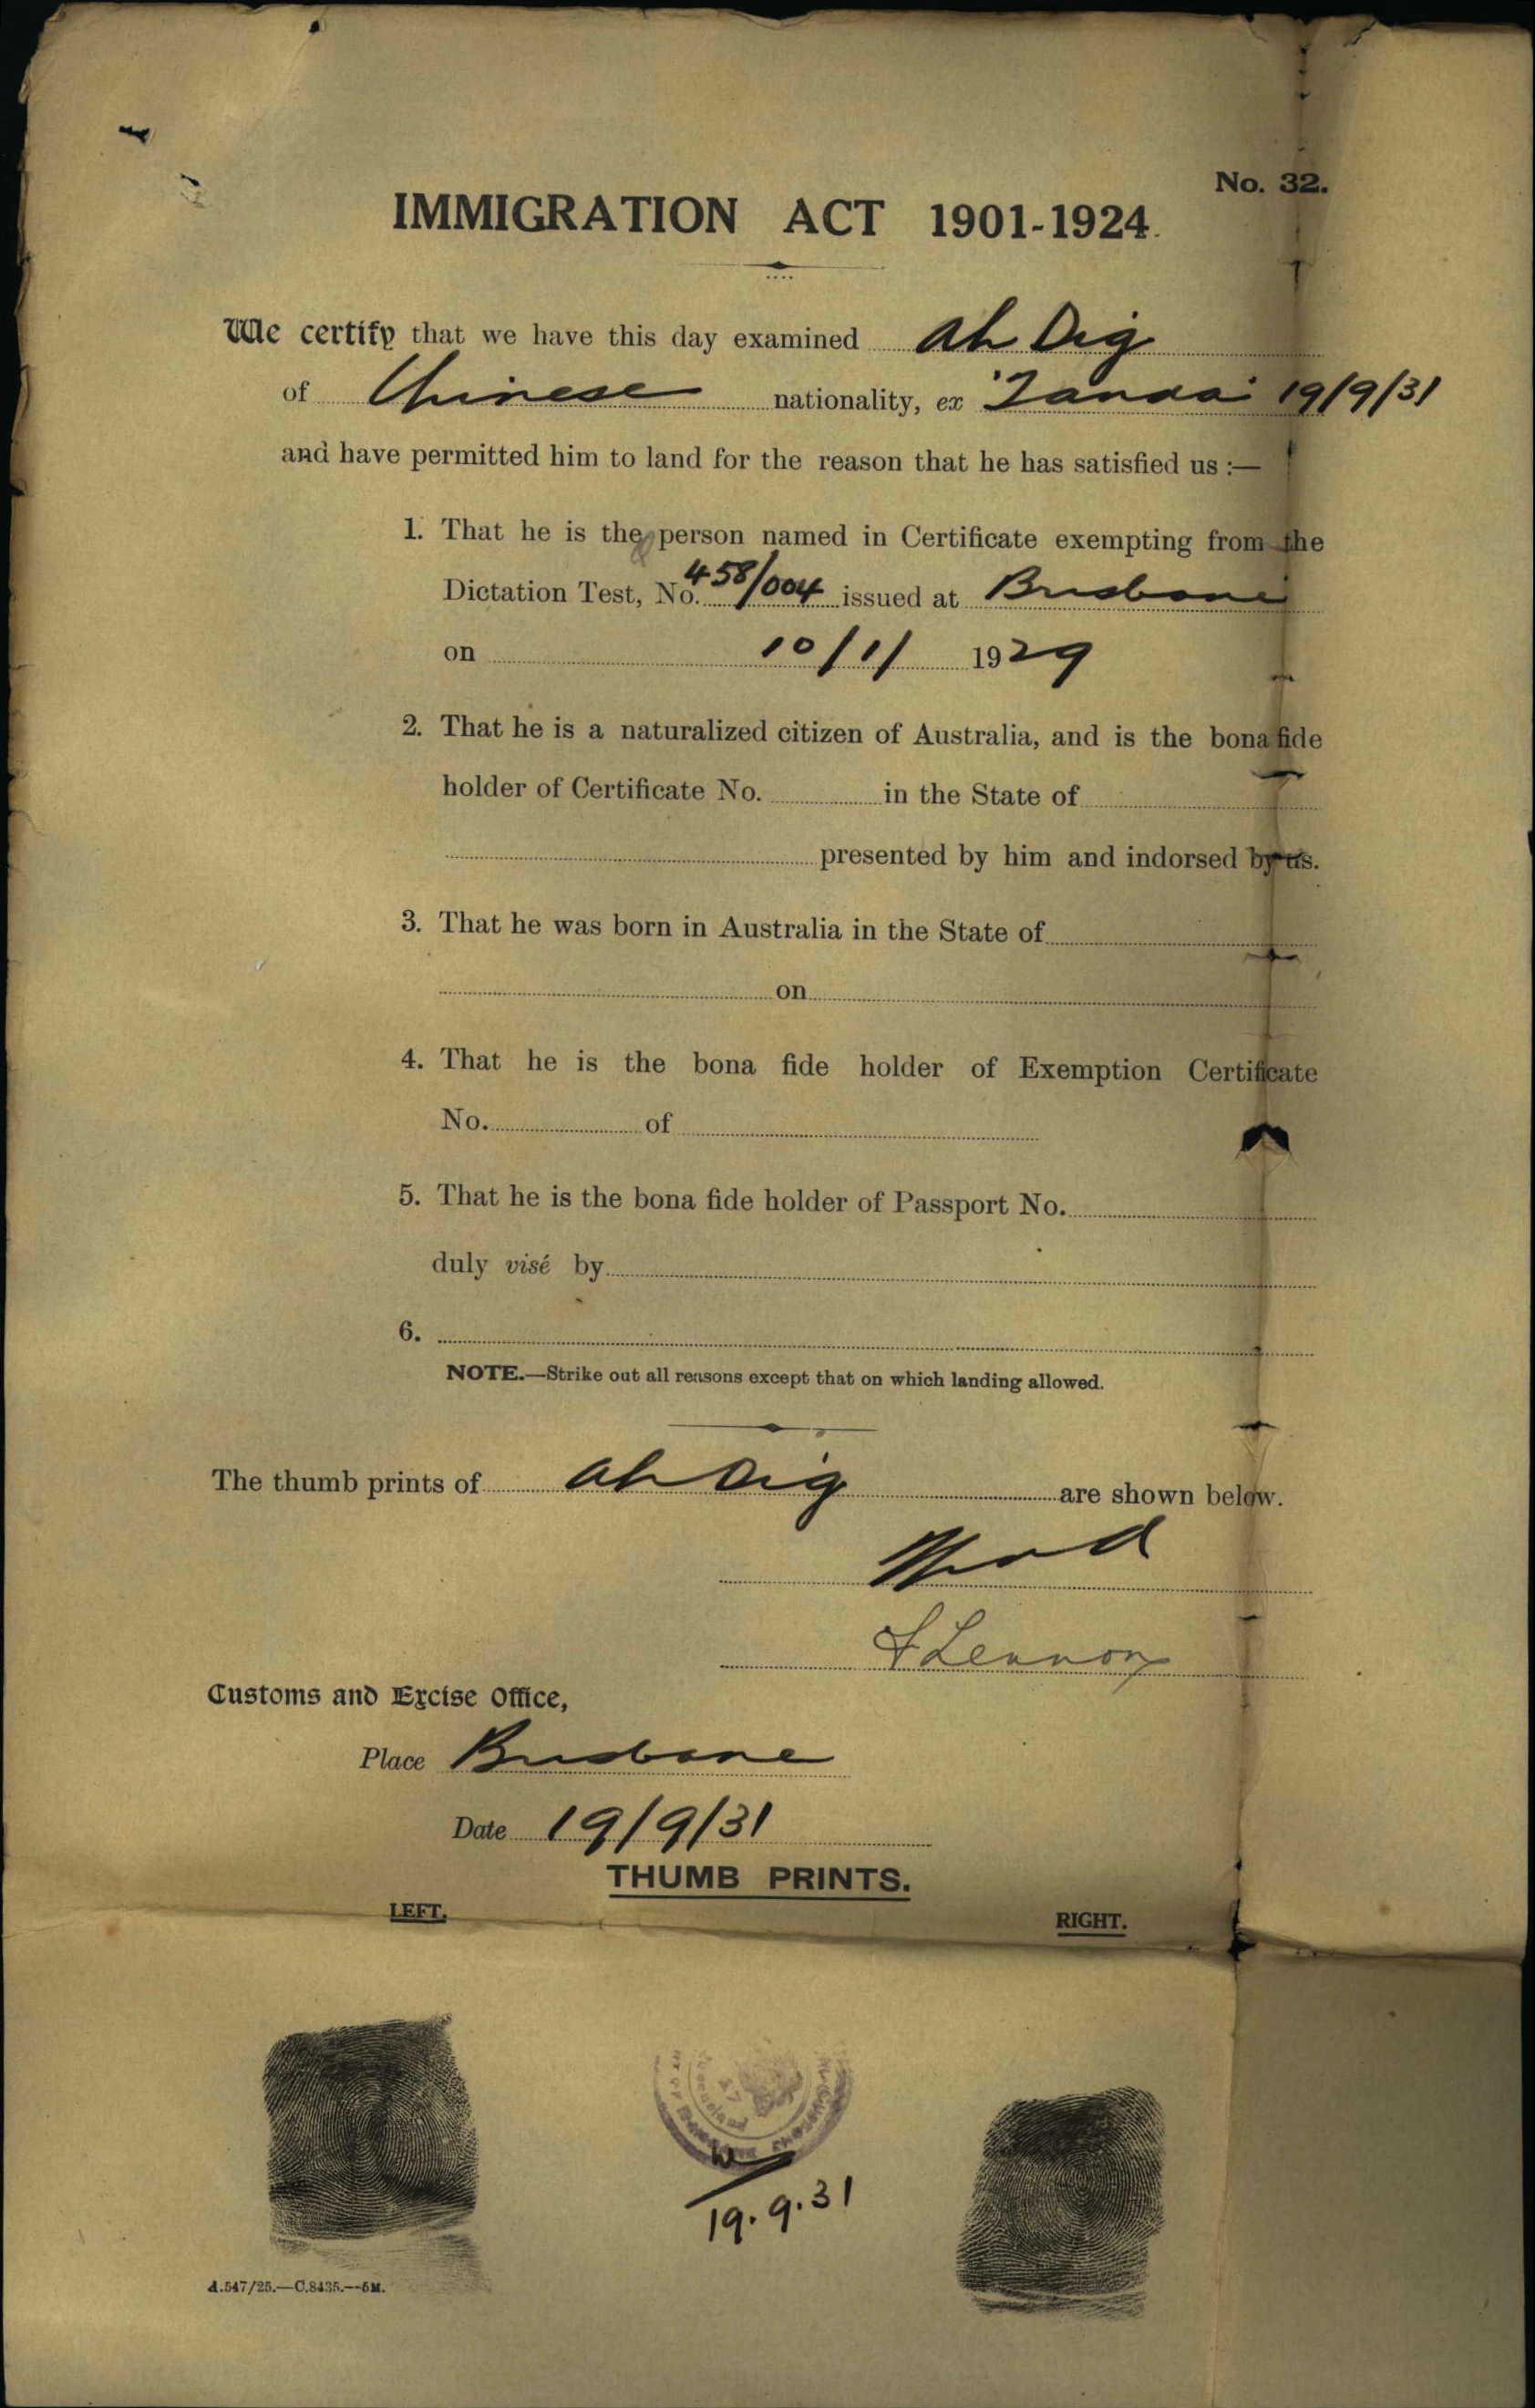 No. 32.
IMMIGRATION ACT 1901-1924.
We certify that we have this day examined Ah Dig
of Chinese nationality, ex "Tanda" 19/9/31
and have permitted him to land for the reason that he has satisfied us :—
1. That he is the person named in Certificate exempting from the
Dictation Test, No. 458/004 issued at Brisbane
on 10/1/ 1929
2. That he is a naturalized citizen of Australia, and is the bona fide
holder of Certificate No. in the State of
presented by him and indorsed by us.
3. That he was born in Australia in the State of
on
4. That he is the bona fide holder of Exemption Certificate
No. of
5. That he is the bona fide holder of Passport No.
duly visé by
6.
NOTE.—Strike out all reasons except that on which landing allowed.
The thumb prints of Ah Dig are shown below.
F Lennon
Customs and Excise Office,
Place Brisbane
Date 19/9/31
THUMB PRINTS.
LEFT.
RIGHT.
Queensland
19.9.31
A.547/25.—C.8435.—5M.